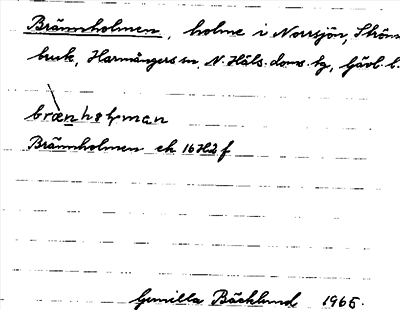 Brännholmen, holme i Norrsjön, Ström
bruk, Harmångers sn, N. Häls. doms. hg, Gävl. l.
brænhɔlman
Brännholmen ek 16H2f
Gunilla Bäcklund 1965.